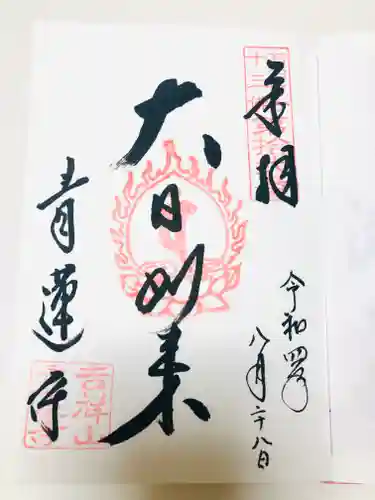 奉拝
令和四年
八月二十八日
大日如来
青蓮寺
吉祥山